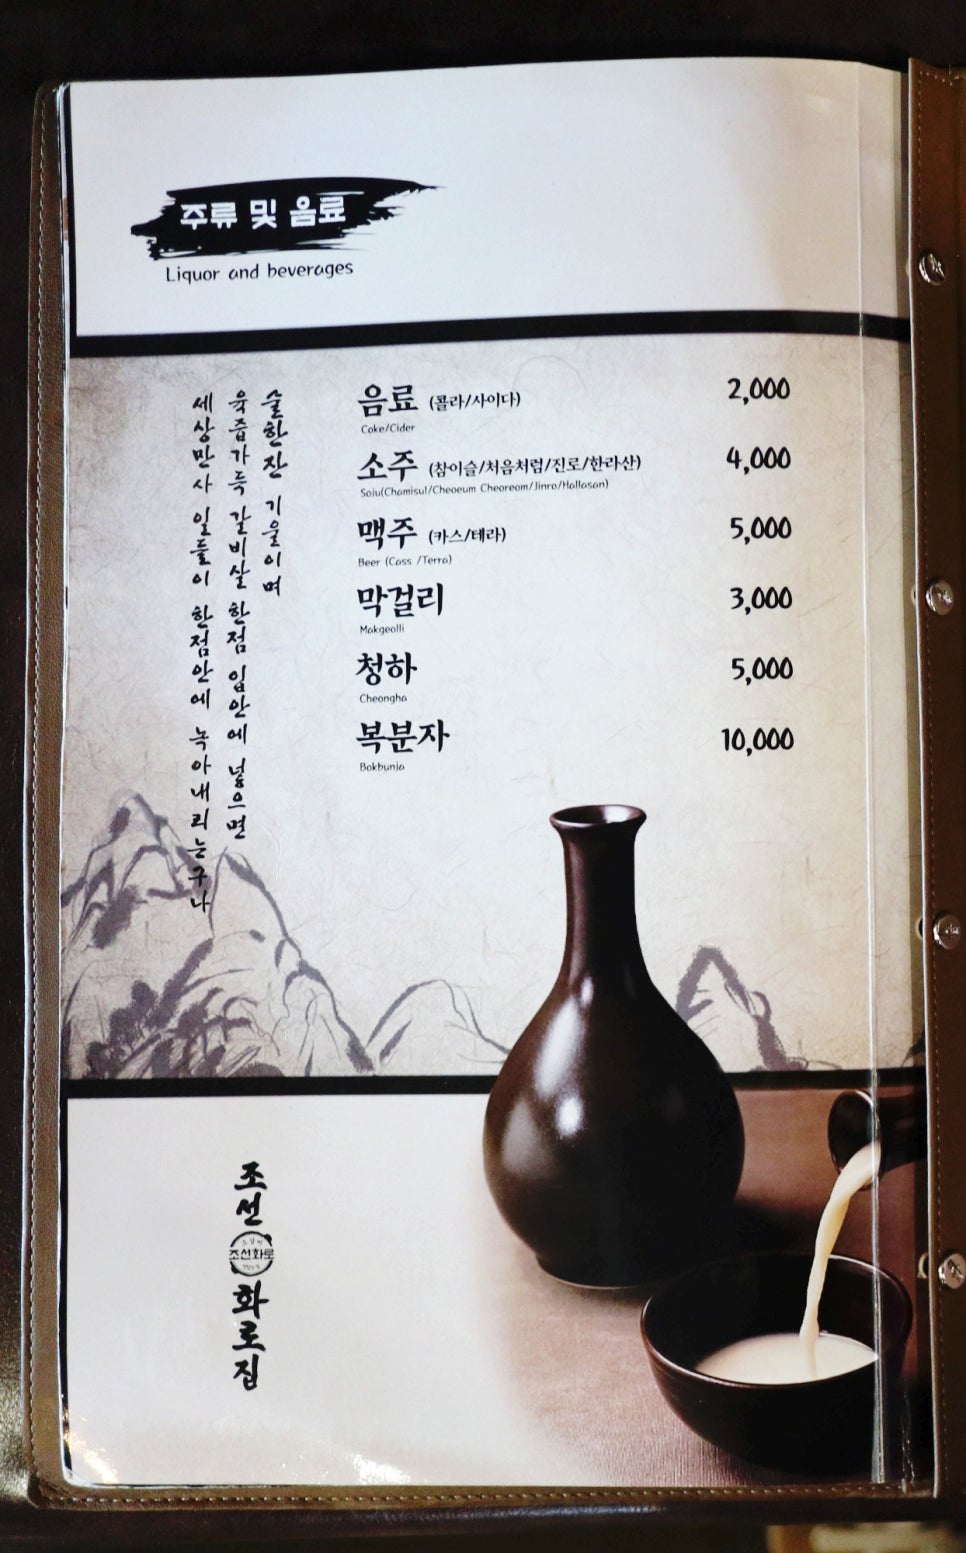 주류 및 음료
Liquor and beverages
술한잔 기울이며
육즙가득 갈비살 한점 입안에 넣으면
세상만사 일들이 한점안에 녹아내리는구나
음료 (콜라/사이다) 2,000
Coke/Cider
소주 (참이슬/처음처럼/진로/한라산) 4,000
Soju(Chamisul/Cheoeum Cheoreom/Jinro/Hallasan)
맥주 (카스/테라) 5,000
Beer (Cass /Terra)
막걸리 3,000
Makgeolli
청하 5,000
Cheongha
복분자 10,000
Bokbunja
조선
조선화로
화로집